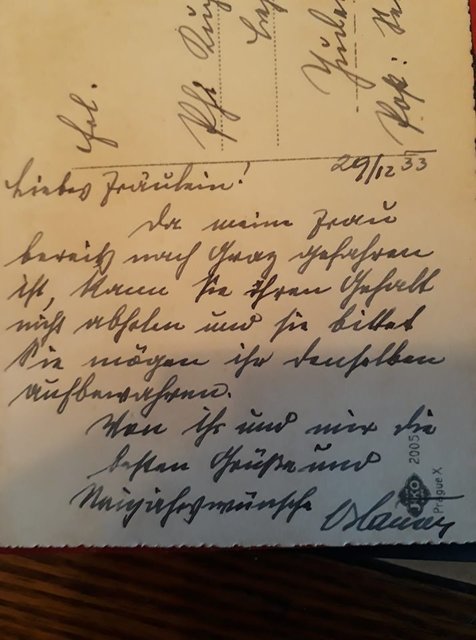 Frl.
29/12 33
Liebes Fräulein!
Da meine Frau
bereits nach Graz gefahren
ist, kann sie ihren Gehalt
nicht abholen und sie bittet
Sie mögen ihr denselben
aufbewahren.
Von ihr und mir die
besten Grüße und
Neujahrswünsche
2005
Prague X